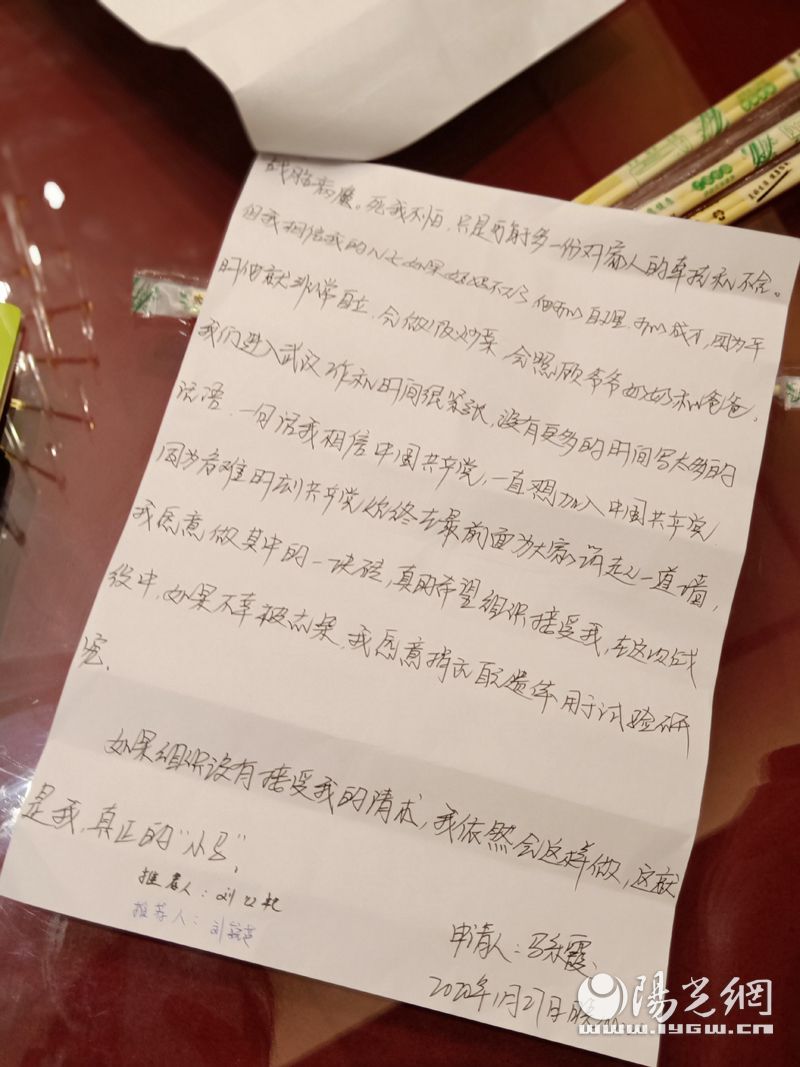 战胜病魔。死我不怕，只是可能多一份对家人的牵挂和不舍。
但我相信我的儿女如果妈妈不在了 自理 成才，因为平
时他就非常自立，会做饭炒菜，会照顾爷爷奶奶和爸爸。
我们进入武汉工作和时间很紧张，没有更多的时间写太多的
话语，一句话我相信中国共产党，一直想加入中国共产党
因为危难时刻共产党始终在最前面为大家 起一道墙，
我愿意做其中的一块砖，真的希望组织接受我，在这次战
役中，如果不幸被感染，我愿意捐献 遗体用于试验研
究。
如果组织没有接受我的请求，我依然会这样做，这就
是我，真正的“小马”，
推荐人：刘
推荐人：刘
申请人：马 霞
2020年1月27日晚
陽光網
www.iygw.cn